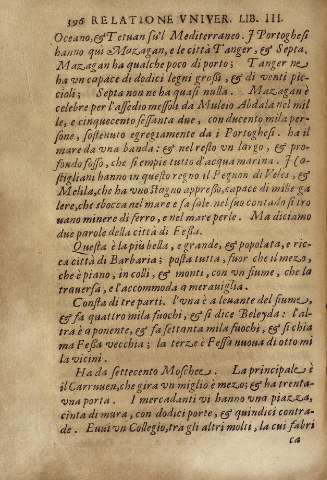 396 RELATIONE VNIVER. LIB. III.
Oceano, & Tetuan su'l Mediterraneo. I Portoghesi
hanno quì Mazagan, e le città Tanger, & Septa.
Mazagan ha qualche poco di porto; Tanger ne
ha vn capace di dodici legni grossi, & di venti pic-
cioli; Septa non ne ha quasi nulla. Mazagan è
celebre per l'assedio messoli da Muleio Abdala nel mil
le, e cinquecento sessanta due, con ducento mila per
sone, sostenuto egregiamente da i Portoghesi. ha il
mare da vna banda; & nel resto vn largo, & pro-
fondo fosso, che si empie tutto d'acqua marina. I Ca
stigliani hanno in questo regno il Pegnon di Veles, &
Melila, che ha vno stagno appresso, capace di mille ga
lere, che sbocca nel mare e fa sole. nel suo contado si tro
uano minere di ferro, e nel mare perle. Ma diciamo
due parole della città di Fessa.
Questa è la più bella, e grande, & popolata, e ric-
ca città di Barbaria; posta tutta, fuor che il mezo,
che è piano, in colli, & monti, con vn fiume, che la
trauersa, e l'accommoda a merauiglia.
Consta di tre parti. l'vna è a leuante del fiume,
& fa quattro mila fuochi, & si dice Beleyda: l'al-
tra è a ponente, & fa settanta mila fuochi, & si chia
ma Fessa vecchia; la terza è Fessa nuoua di otto mi
la vicini.
Ha da settecento Moschee. La principale è
il Carruuen, che gira vn miglio è mezo; & ha trenta-
vna porta. I mercadanti vi hanno vna piazza,
cinta di mura, con dodici porte, & quindici contra-
de. Euui vn Collegio, tra gli altri molti, la cui fabri
ca